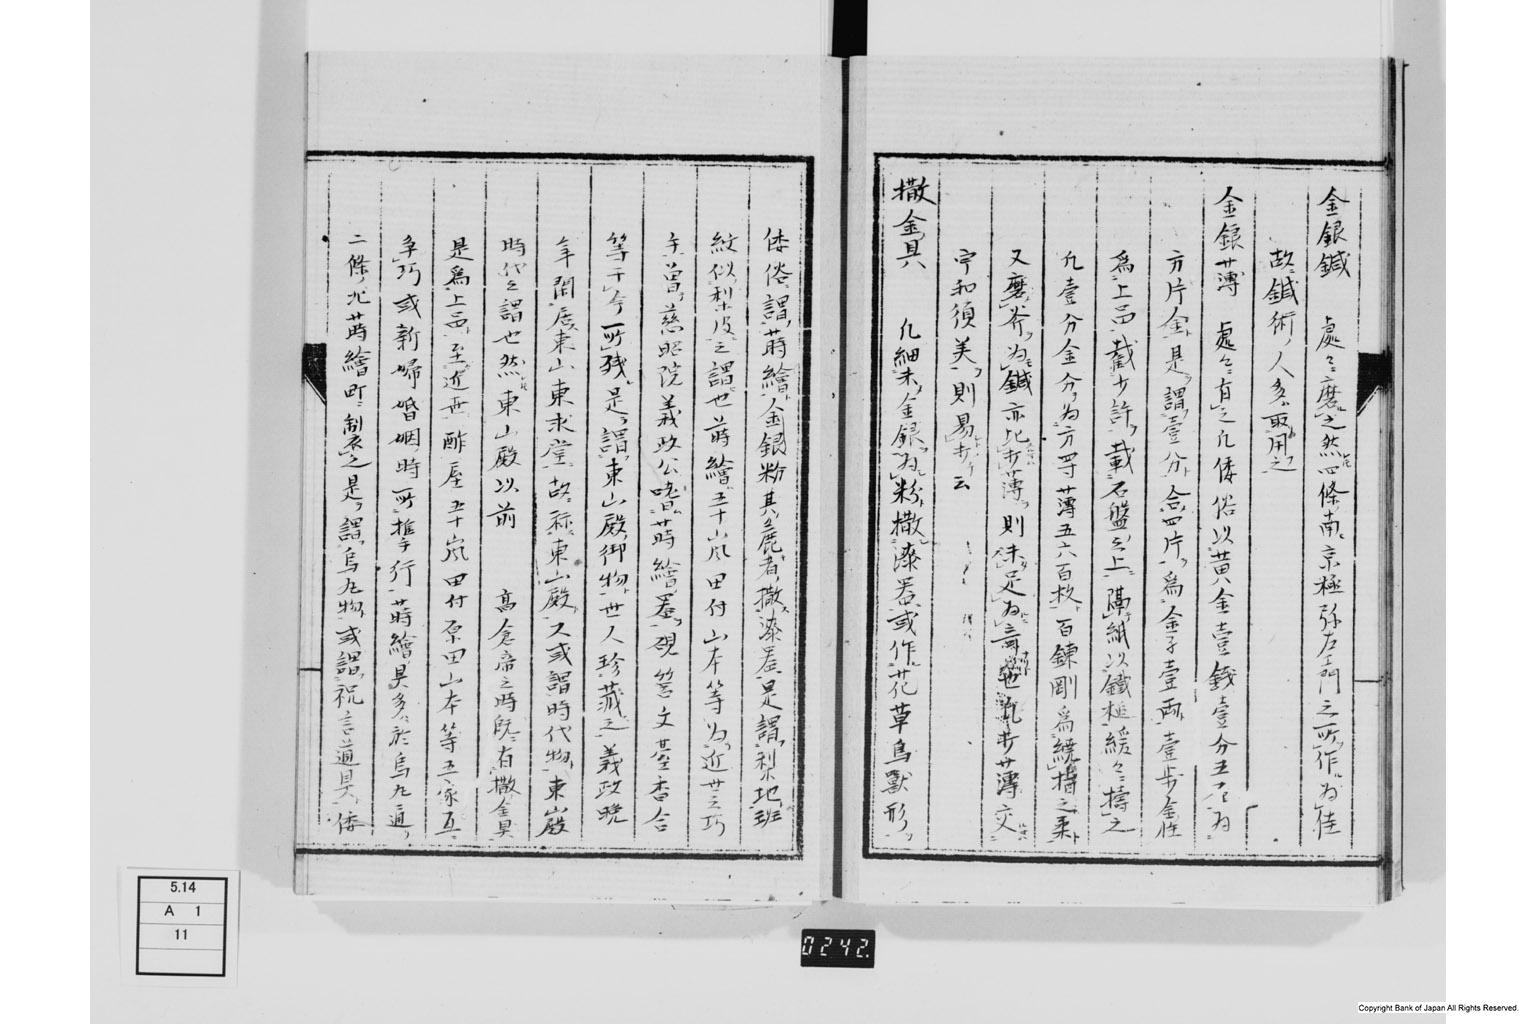 金銀鍼 處々磨之然四條南京極弥左衛門之所作為佳
故鍼術人多取用之
金銀薄 處々有之凡倭俗以黄金壹錢壹分五厘為
方片金是謂壹分合四片為金子壹兩壹歩金
為上品截少許載石盤之上隔紙以鐵槌緩々擣之
凡壹分金分為方四寸薄五六百枚百錬剛為繞指之柔
又磨斧為鍼亦比打薄則未足為奇也凡打薄交
宇和須美則易打云
撒金具 凡細末金銀為粉撒漆器或作花草鳥獸形
倭俗謂蒔繪金銀粉其麁者撒漆器是謂梨地班
紋似梨皮之謂也蒔繪五十嵐田付山本等為近世之巧
手曽慈昭院義政公嗜蒔繪器硯筥文臺香合
等于今所殘是謂東山殿御物世人珍藏之義政晩
年閑居東山東求堂故称東山殿又或謂時代物東山殿
時代之謂也然東山殿以前 高倉帝之時既有撒金具
是為上品至近世酢屋五十嵐田付原田山本等五家互
爭巧或新婦婚姻時所携行蒔繪具多於烏丸通
二條北蒔繪町製之是謂烏丸物或謂祝言道具倭
5.14
A 1
11
0242.
Copyright Bank of Japan All Rights Reserved.